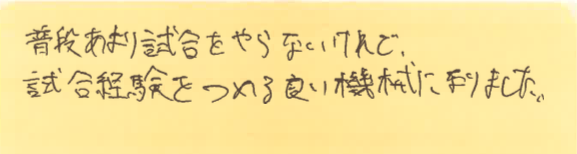 普段あまり試合をやらないけれど、
試合経験をつめる良い機械になりました。